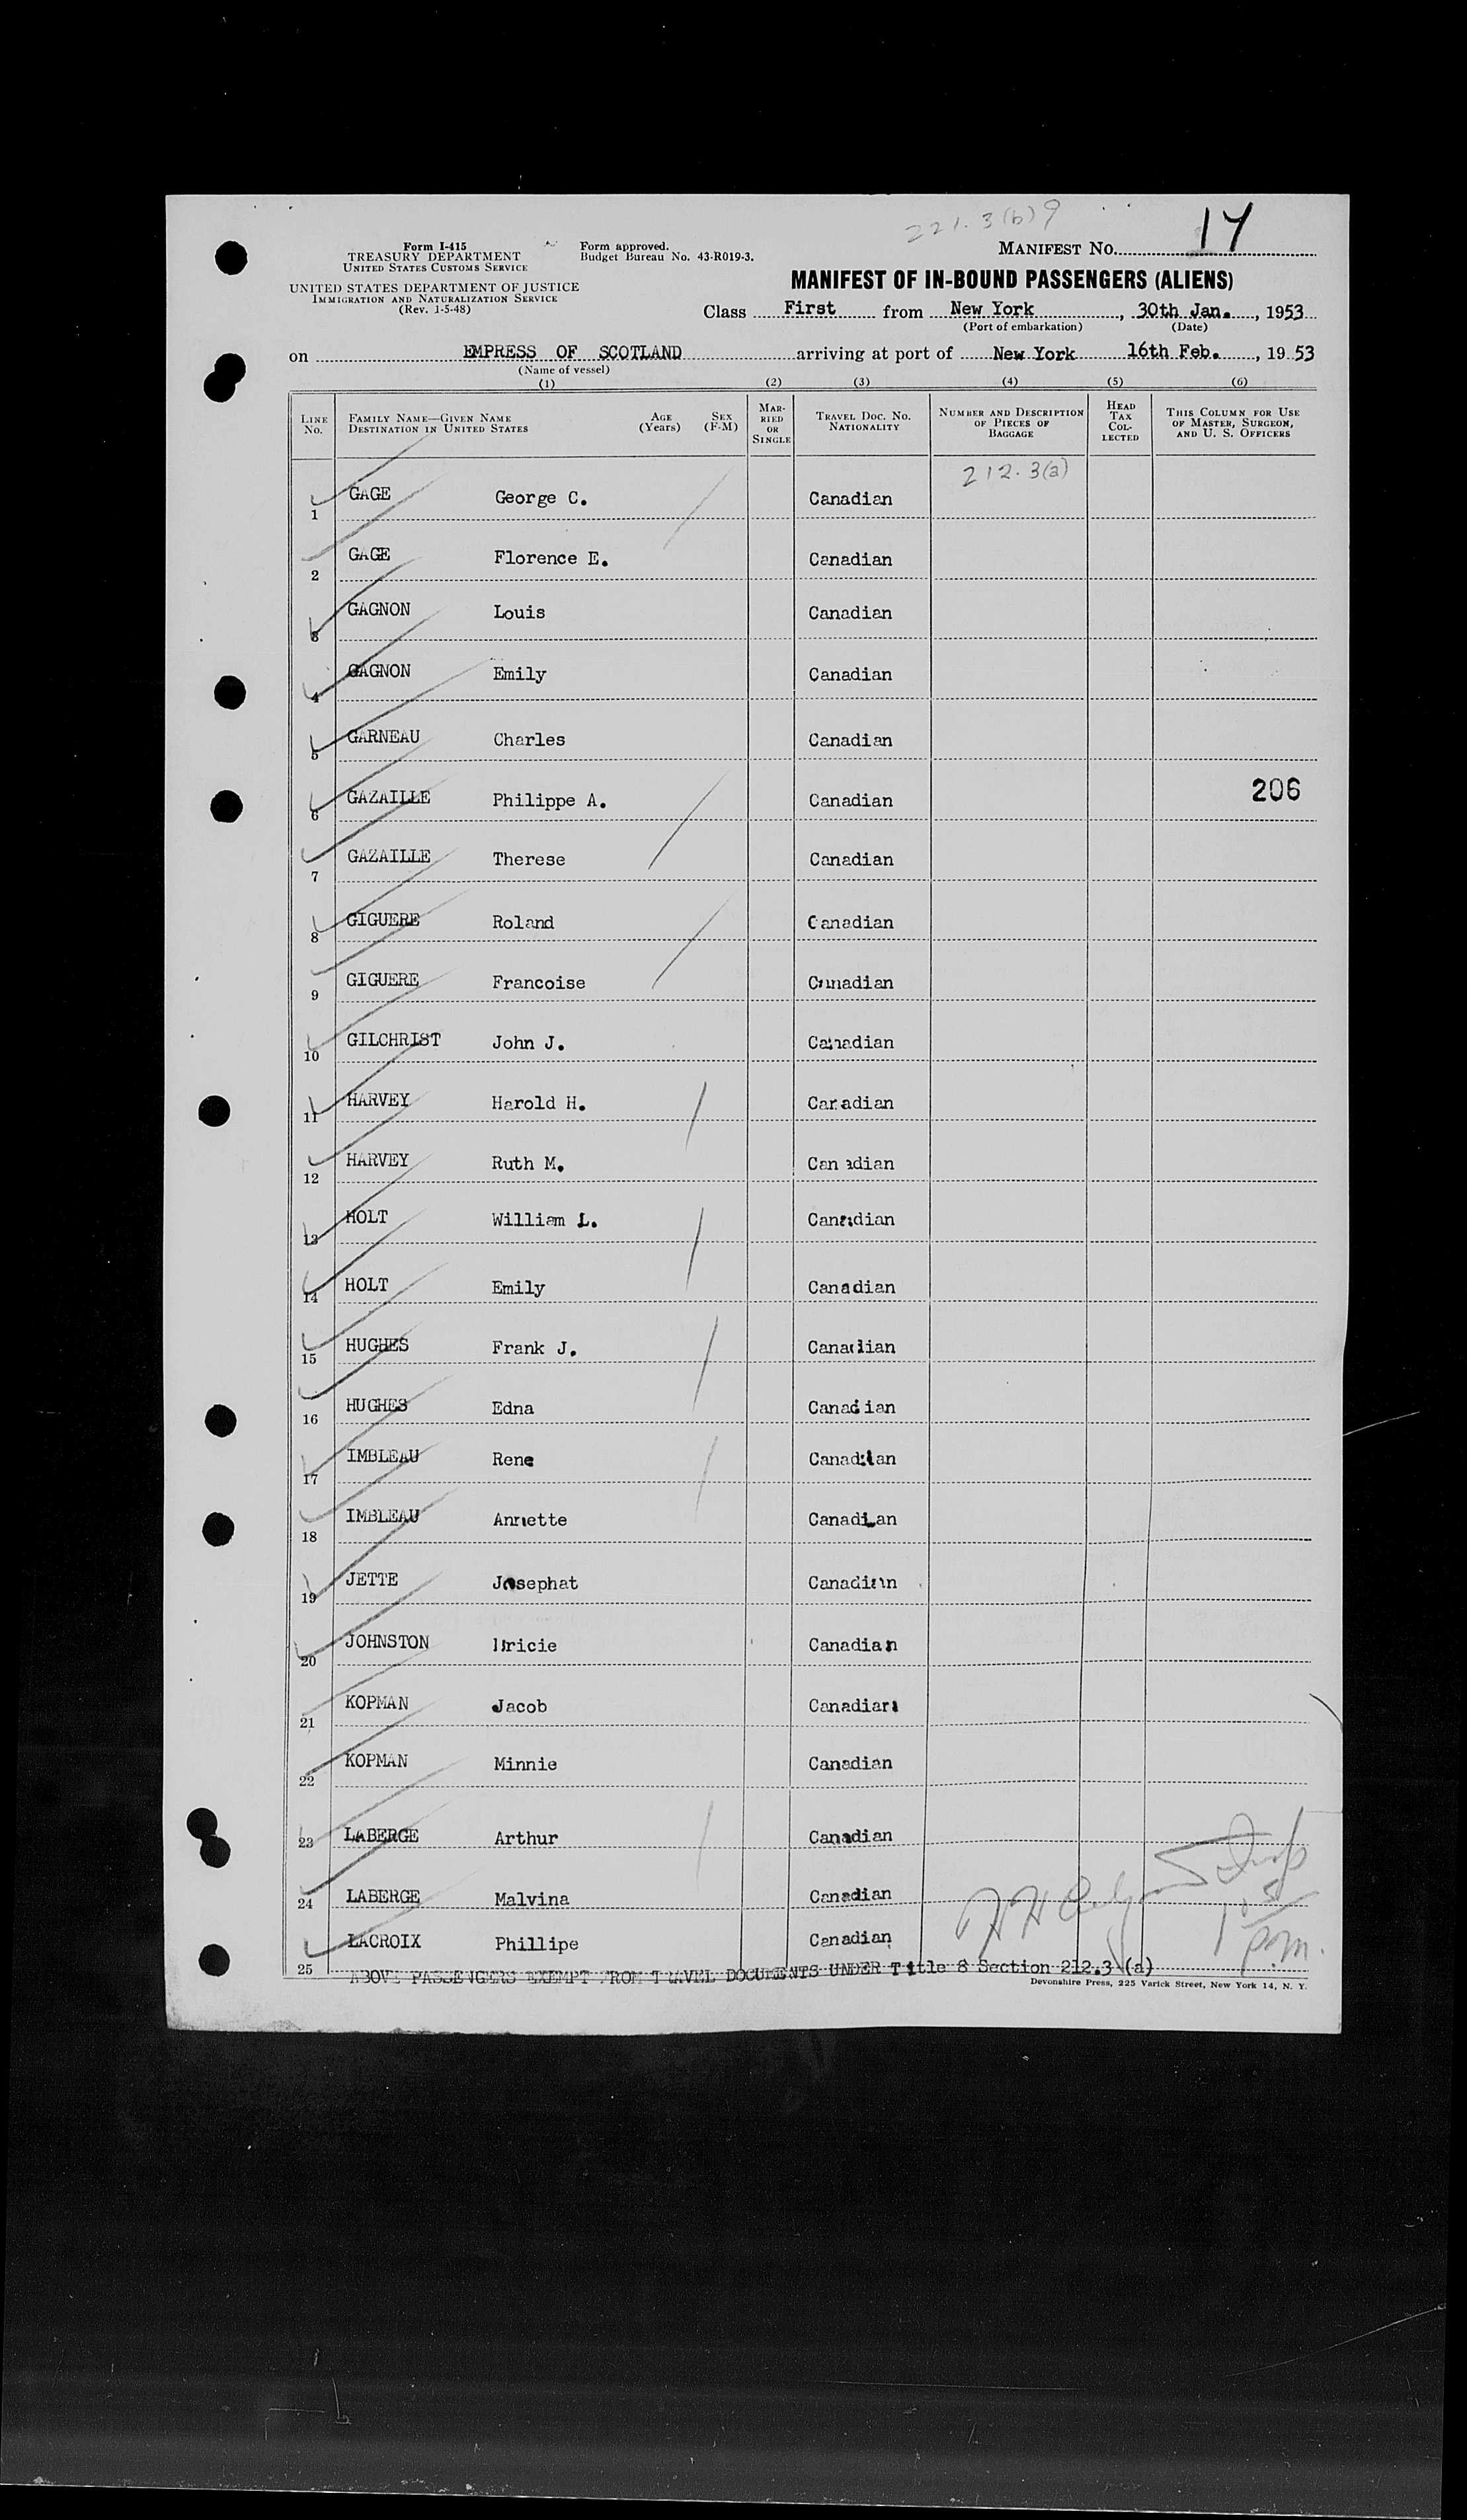 221.3(b)9
Form I-415
TREASURY DEPARTMENT
UNITED STATES CUSTOMS SERVICE
UNITED STATES DEPARTMENT OF JUSTICE
IMMIGRATION AND NATURALIZATION SERVICE
(Rev. 1-5-48)
Form approved.
Budget Bureau No. 43-R019-3.
MANIFEST NO. 17
MANIFEST OF IN-BOUND PASSENGERS (ALIENS)
Class First from New York, 30th Jan., 1953
(Port of embarkation) (Date)
on EMPRESS OF SCOTLAND arriving at port of New York 16th Feb., 19 53
(Name of vessel)
(1) (2) (3) (4) (5) (6)
LINE NO. FAMILY NAME—GIVEN NAME DESTINATION IN UNITED STATES AGE (Years) SEX (F-M) MARRIED OR SINGLE TRAVEL DOC. NO. NATIONALITY NUMBER AND DESCRIPTION OF PIECES OF BAGGAGE HEAD TAX COLLECTED THIS COLUMN FOR USE OF MASTER, SURGEON, AND U. S. OFFICERS
212.3(a)
1 GAGE George C. Canadian
2 GAGE Florence E. Canadian
3 GAGNON Louis Canadian
4 GAGNON Emily Canadian
5 GARNEAU Charles Canadian
6 GAZAILLE Philippe A. Canadian 206
7 GAZAILLE Therese Canadian
8 GIGUERE Roland Canadian
9 GIGUERE Francoise Canadian
10 GILCHRIST John J. Canadian
11 HARVEY Harold H. Canadian
12 HARVEY Ruth M. Canadian
13 HOLT William L. Canadian
14 HOLT Emily Canadian
15 HUGHES Frank J. Canadian
16 HUGHES Edna Canadian
17 IMBLEAU Rene Canadian
18 IMBLEAU Annette Canadian
19 JETTE Josephat Canadian
20 JOHNSTON Canadian
21 KOPMAN Jacob Canadian
22 KOPMAN Minnie Canadian
23 LABERGE Arthur Canadian
24 LABERGE Malvina Canadian
25 LACROIX Phillipe Canadian
pm.
ABOVE PASSENGERS EXEMPT FROM TRAVEL DOCUMENTS UNDER Title 8 Section 212.3 (a)
Devonshire Press, 225 Varick Street, New York 14, N. Y.